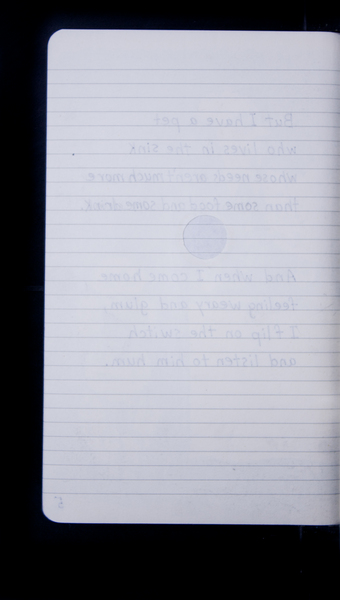 But I have a pet
who lives in the sink
whose needs aren't much more
than some food and some drink.
And when I come home
feeling weary and glum,
I flip on the switch
and listen to him hum.